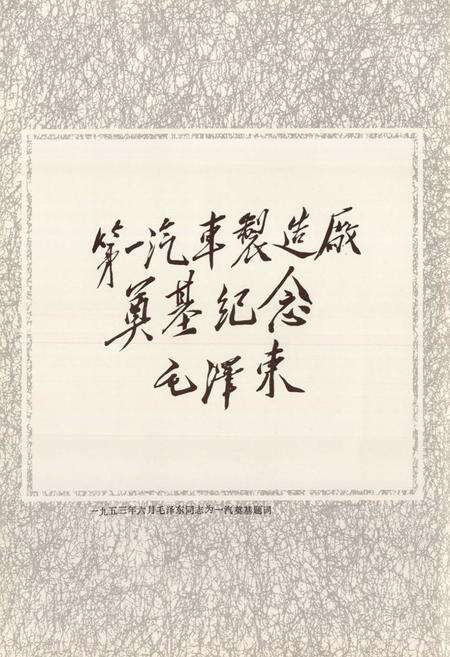 第一汽車製造廠
奠基紀念
毛澤東
一九五三年六月毛泽东同志为一汽奠基题词